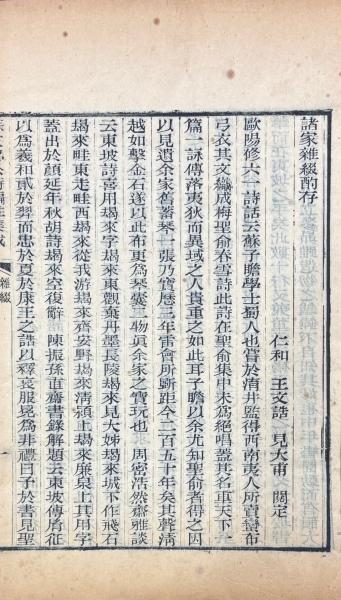 諸家雜綴酌存
仁和 王文誥 見大甫 閱定
歐陽修六一詩話云蘇子瞻學士蜀人也嘗於淯井監得西南夷人所賣蠻布
弓衣其文織成梅聖俞春雪詩此詩在聖俞集中未為絕唱蓋其名重天下一
篇一詠傳落夷狄而異域之人貴重之如此耳子瞻以余尤知聖俞者得之因
以見遺余家舊蓄琴一張乃寶歷三年雷會所斲距今二百五十年矣其聲清
越如擊金石遂以此布更為琴囊二物真余家之寶玩也 周密浩然齋雅談
云東坡詩喜用朅來字朅來東觀棄丹墨長陵朅來見大姊朅來城下作飛石
朅來畦東走畦西朅來從我游朅來齊安野朅來清潁上朅來廉泉上其用字
蓋出於顏延年秋胡詩朅來空復辭 陳振孫直齋書錄解題云東坡傳膚征
以為羲和貳於羿而忠於夏於康王之誥以釋衰服冕為非禮曰予於書見聖
雜綴
一